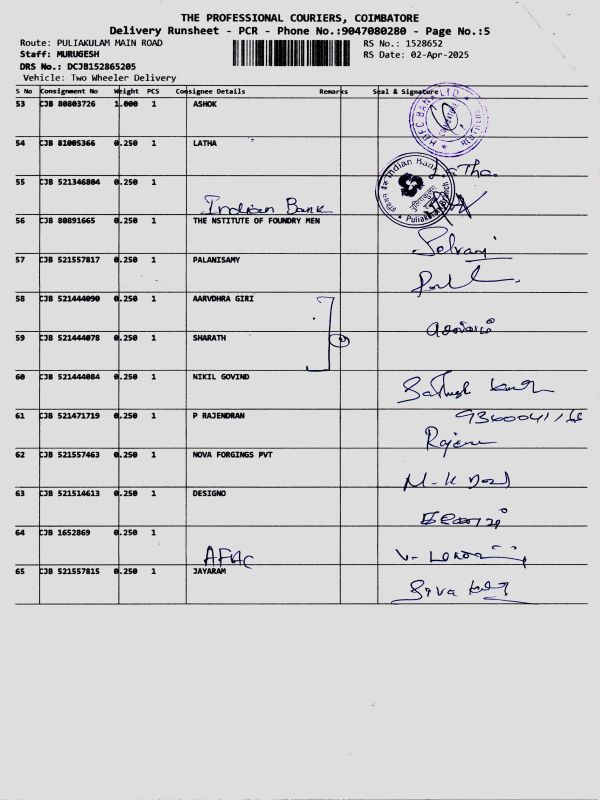 THE PROFESSIONAL COURIERS, COIMBATORE
Delivery Runsheet - PCR - Phone No.:9047080280 - Page No.:5
Route: PULIAKULAM MAIN ROAD RS No.: 1528652
Staff: MURUGESH RS Date: 02-Apr-2025
DRS No.: DCJB152865205
Vehicle: Two Wheeler Delivery
S No Consignment No Weight PCS Consignee Details Remarks Seal & Signature
53 CJB 80803726 1.000 1 ASHOK
54 CJB 81005366 0.250 1 LATHA
Latha.
55 CJB 521346804 0.250 1
Indian Bank
Indian Bank
56 CJB 80891665 0.250 1 THE NSTITUTE OF FOUNDRY MEN
Selvaraj
57 CJB 521557817 0.250 1 PALANISAMY
58 CJB 521444090 0.250 1 AARVDHRA GIRI
59 CJB 521444078 0.250 1 SHARATH
60 CJB 521444084 0.250 1 NIKIL GOVIND
Sathish
61 CJB 521471719 0.250 1 P RAJENDRAN
62 CJB 521557463 0.250 1 NOVA FORGINGS PVT
63 CJB 521514613 0.250 1 DESIGNO
64 CJB 1652869 0.250 1
65 CJB 521557815 0.250 1 JAYARAM
Siva